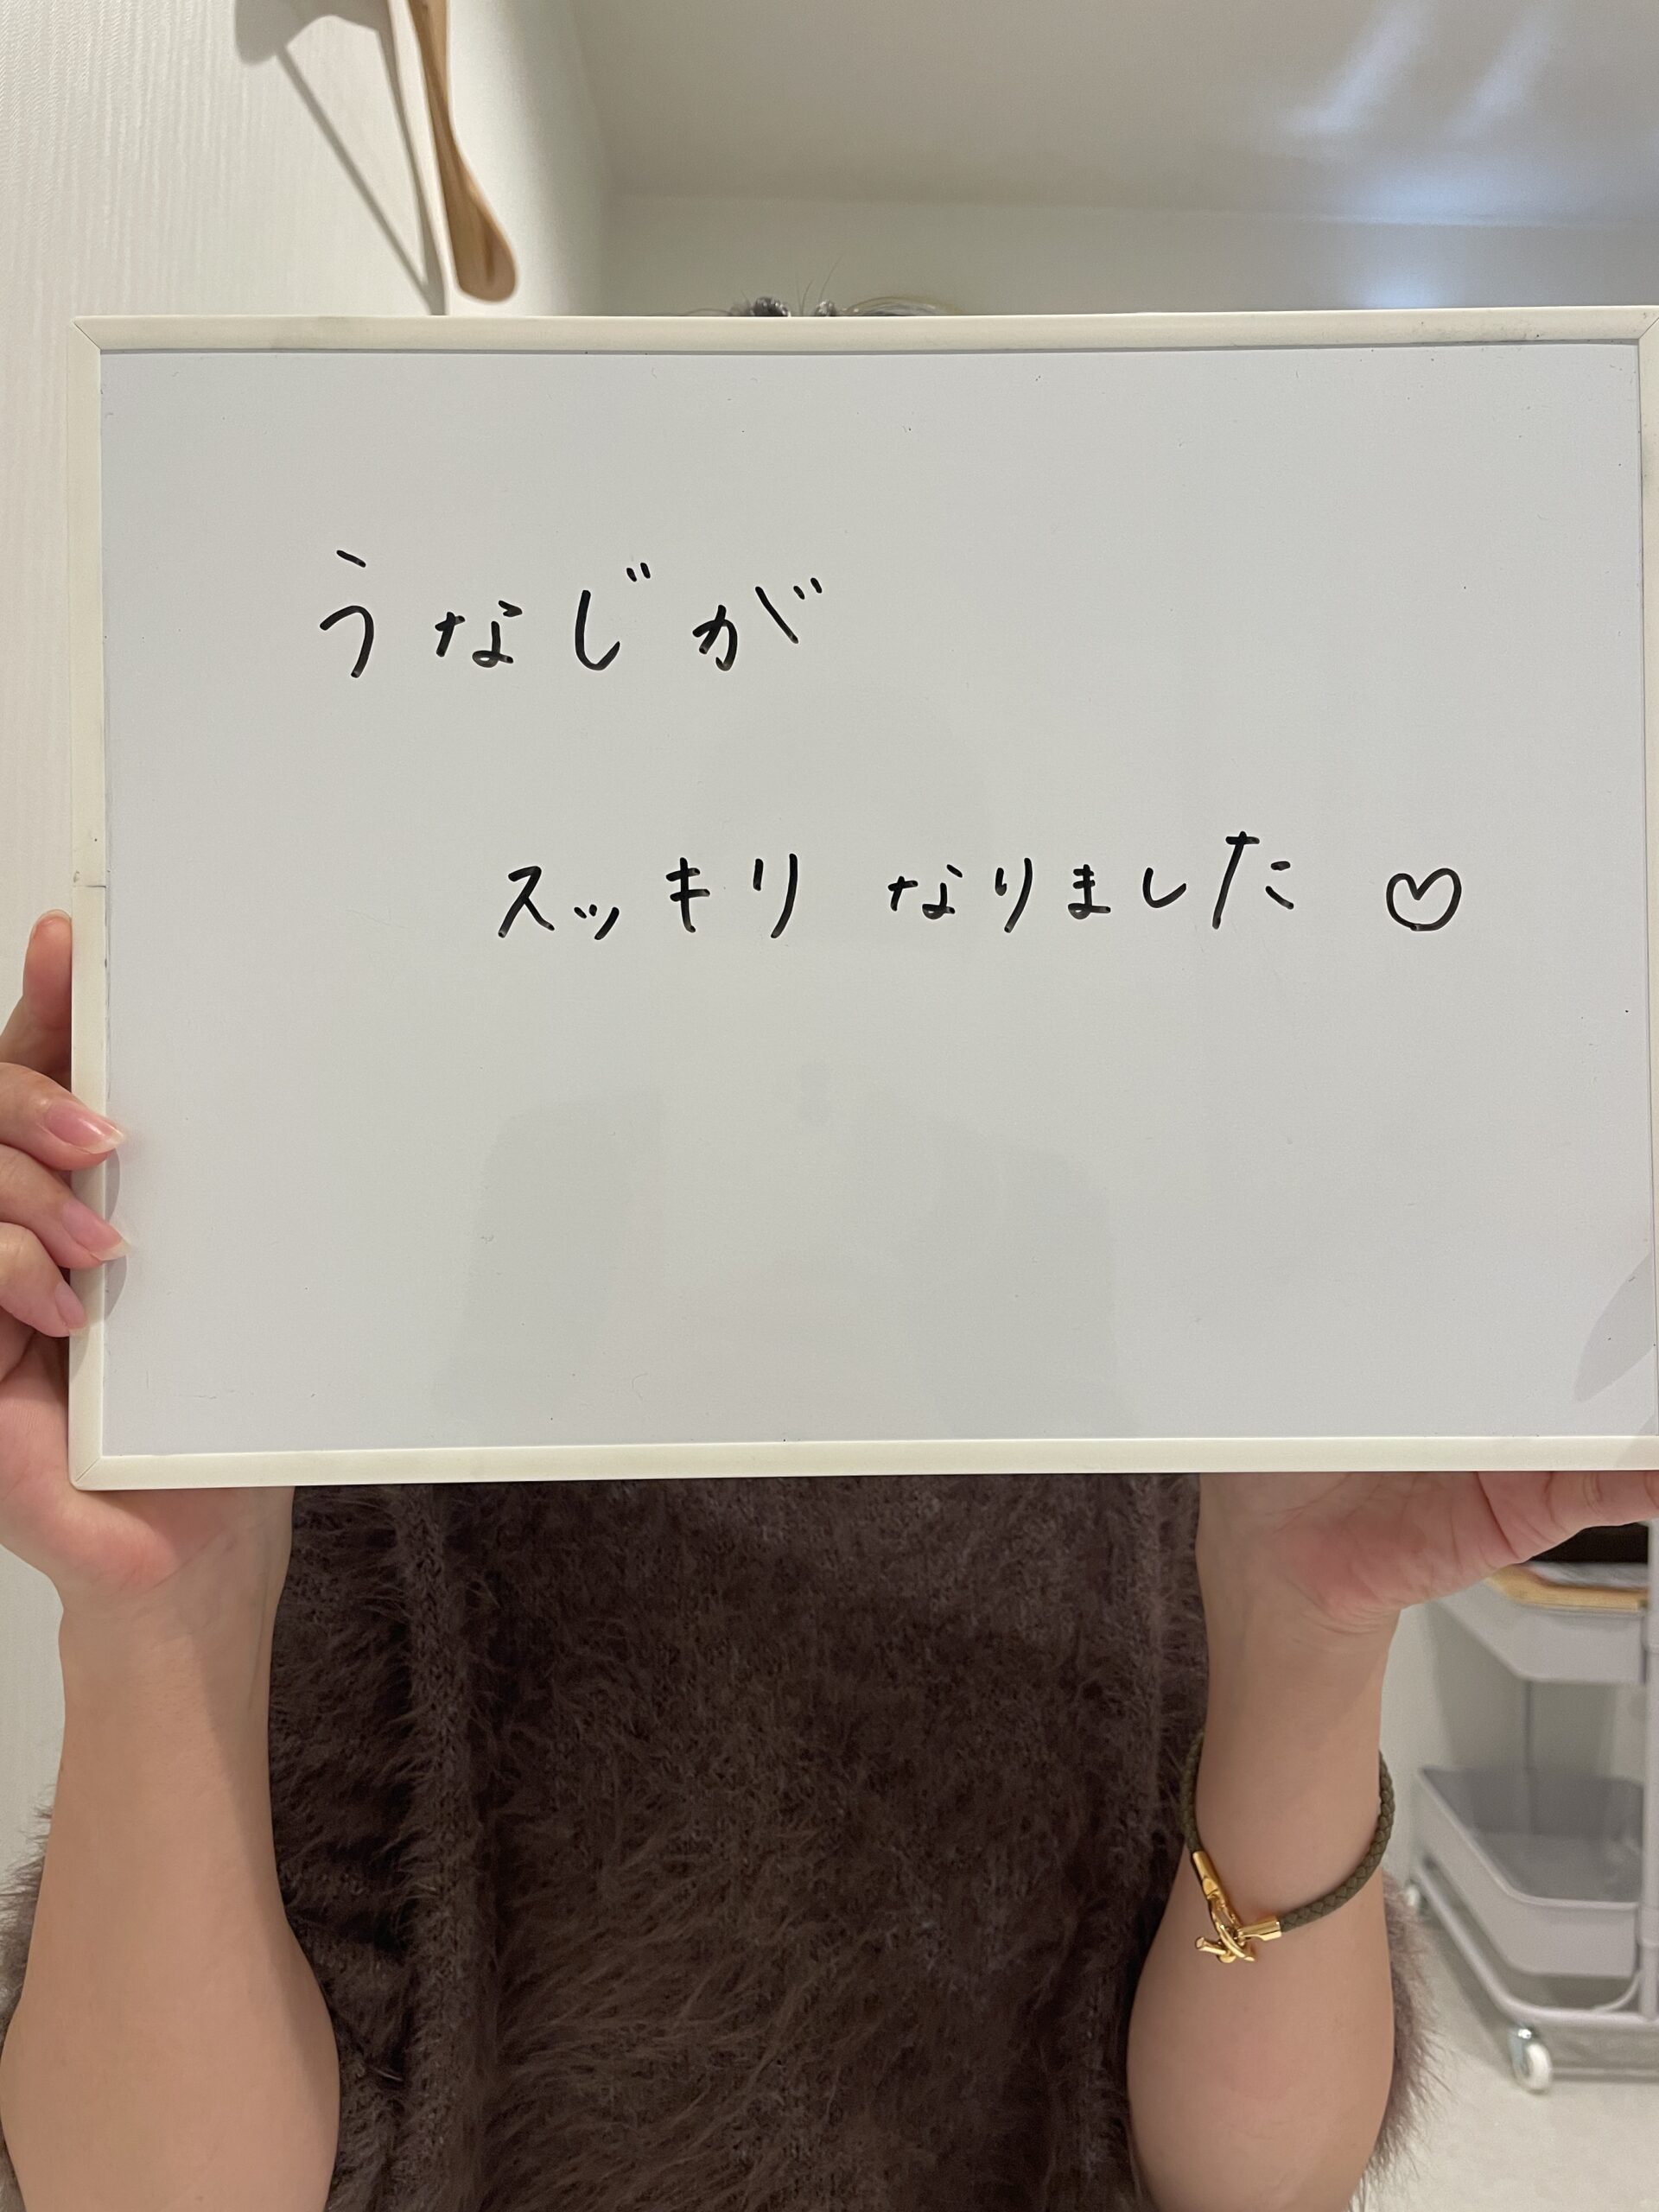 うなじが
スッキリなりました♡